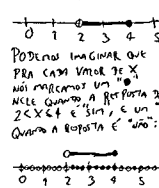 0 1 2 3 4 5
PODEMOS IMAGINAR QUE
PRA CADA VALOR DE X
NÓS MARCAMOS UM "●"
NELE QUANDO A RESPOSTA D
2<X≤4 É "SIM", E UM
QUANDO A RESPOSTA É "NÃO":
0 1 2 3 4 5